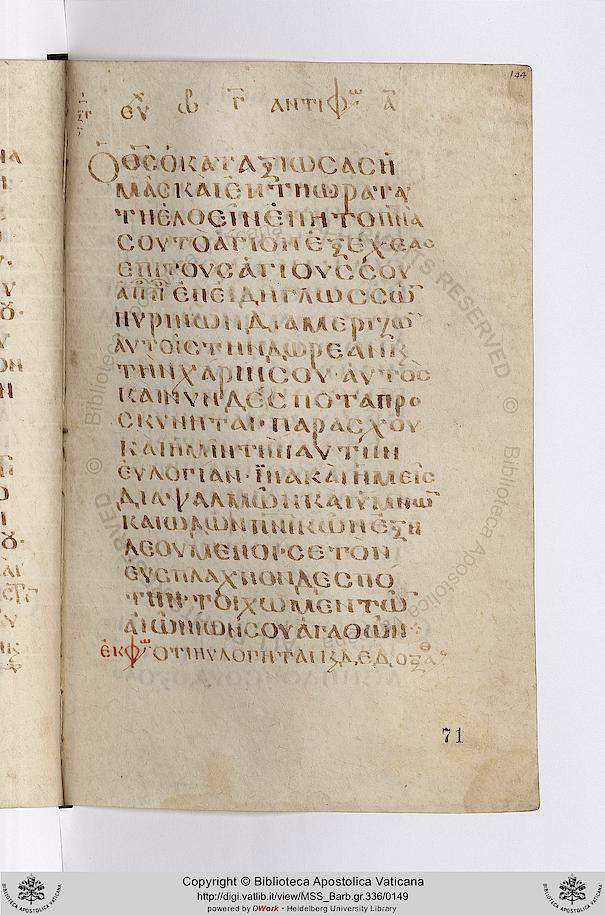 ΕΥΧ ΩΡ Γ ΑΝΤΙΦω Α
Ὁ ΘΣ Ὁ ΚΑΤΑΞΙΩCΑC Ἡ
ΜΑC ΚΑΙ ΕΝ ΤΗ ΩΡΑ ΤΑΥ
ΤΗ ΕΛΘΕΙΝ ΕΝ Η ΤΟ ΠΝΑ
CΟΥ ΤΟ ΑΓΙΟΝ ΕΞΕΧΕΑC
ΕΠΙ ΤΟΥC ΑΓΙΟΥC CΟΥ
ΕΝ ΕΙΔΗ ΓΛΩCCΩ̅
ΠΥΡΙΝΩΝ ΔΙΑΜΕΡΙΖΩ̅
ΑΥΤΟΙC ΤΗΝ ΔΩΡΕΑΝ Κ
ΤΗΝ ΧΑΡΙΝ CΟΥ· ΑΥΤΟC
ΚΑΙ ΝΥΝ ΔΕCΠΟΤΑ ΠΡΟ
CΚΥΝΗΤΑΙ· ΠΑΡΑCΧΟΥ
ΚΑΙ ΗΜΙΝ ΤΗΝ ΑΥΤΗΝ
ΕΥΛΟΓΙΑΝ· ΪΝΑ ΚΑΙ ΗΜΕΙC
ΔΙΑ ΨΑΛΜΩΝ ΚΑΙ ΥΜΝΩ̅
ΚΑΙ ΩΔΩΝ ΠΝΙΚΩΝ ΕΞΗ
ΛΕΟΥΜΕΝΟΙ CΕ ΤΟΝ
ΕΥCΠΛΑΧΝΟΝ ΔΕCΠΟ
ΤΗΝ· ΤΟΙΧΩΜΕΝ ΤΩ̅
ΑΙΩΝΙΩΝ CΟΥ ΑΓΑΘΩΝ·
ΕΚΦω ΟΤΙ ΗΥΛΟΓΗΤΑΙ
144
71
Copyright © Biblioteca Apostolica Vaticana
http://digi.vatlib.it/view/MSS_Barb.gr.336/0149
powered by DWork • Heidelberg University Library